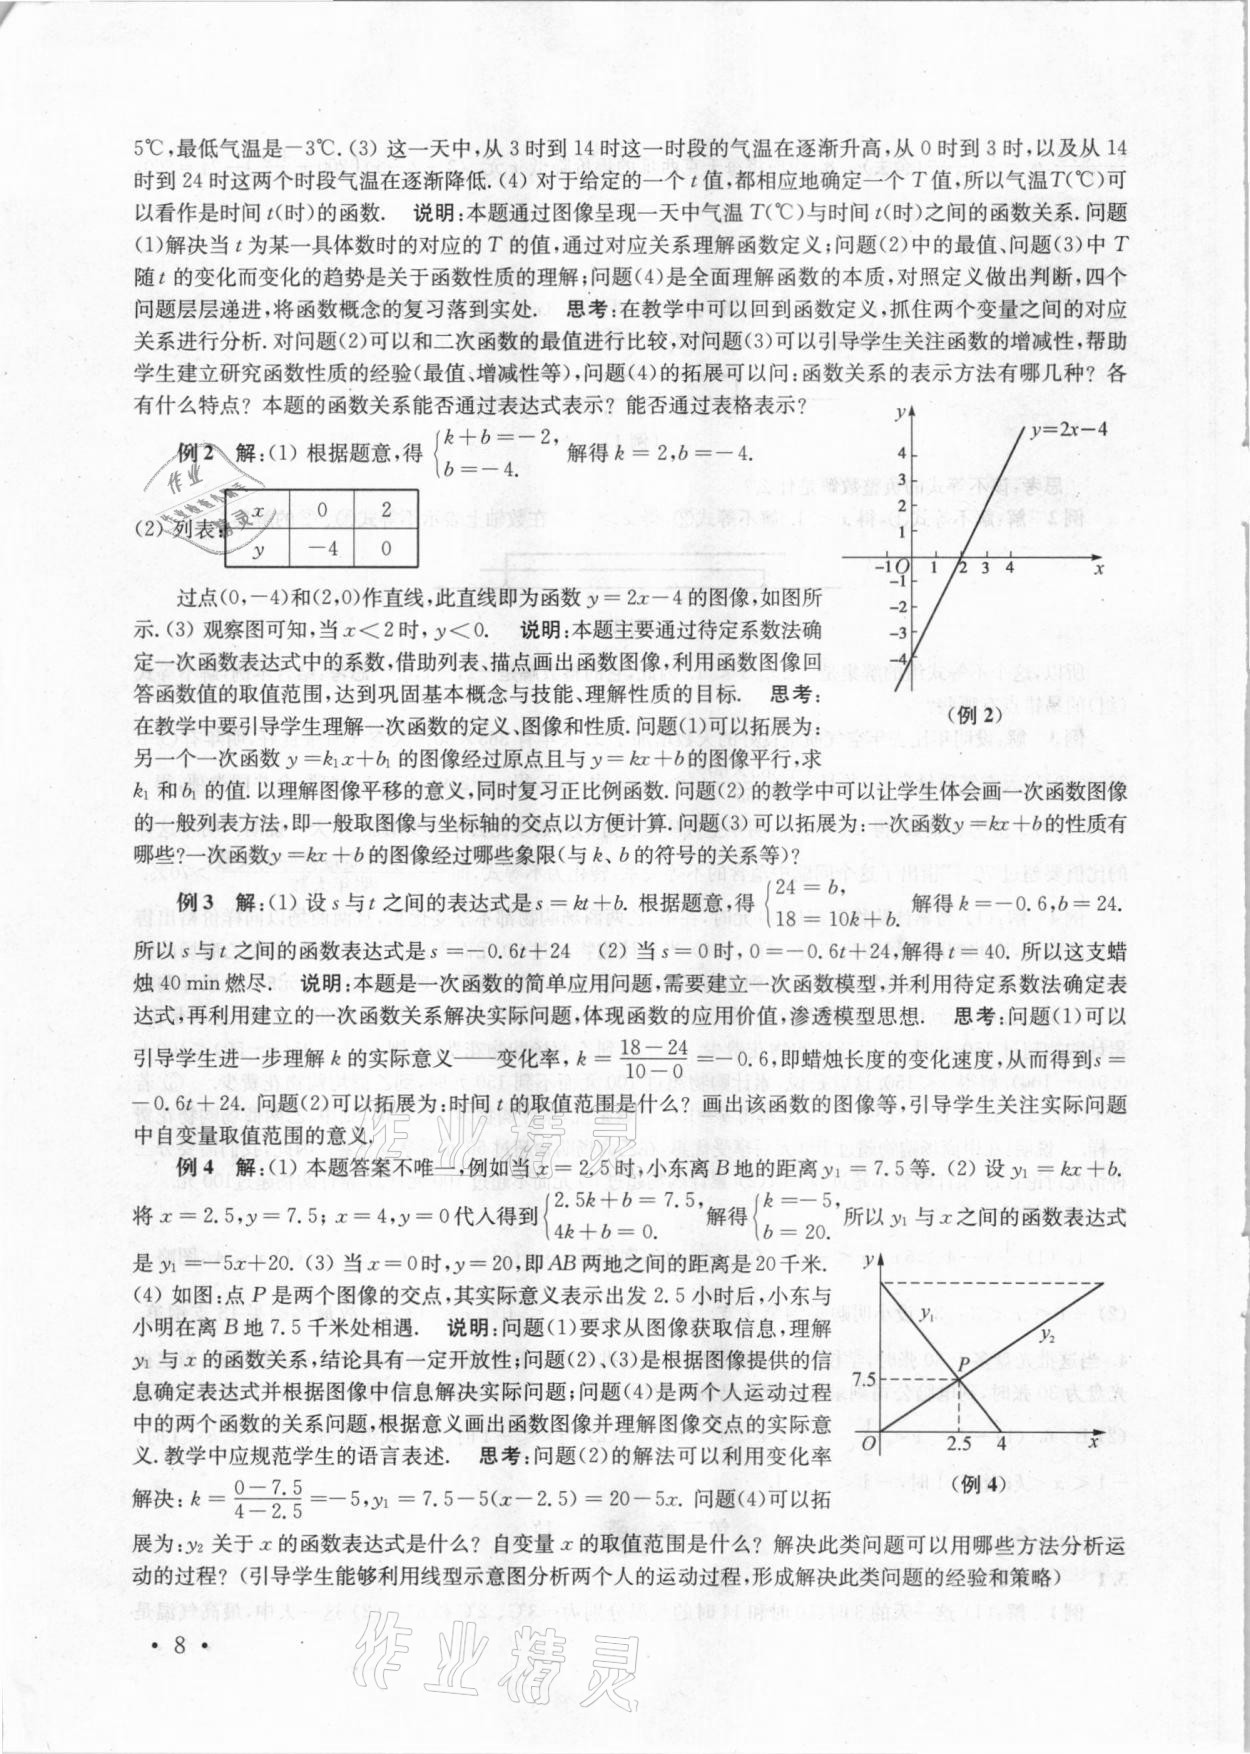 5℃,最低气温是-3℃.(3) 这一天中,从 3 时到 14 时这一时段的气温在逐渐升高,从 0 时到 3 时,以及从 14
时到 24 时这两个时段气温在逐渐降低.(4) 对于给定的一个 t 值,都相应地确定一个 T 值,所以气温T(℃)可
以看作是时间 t(时)的函数. 说明:本题通过图像呈现一天中气温 T(℃)与时间 t(时)之间的函数关系.问题
(1)解决当 t 为某一具体数时的对应的 T 的值,通过对应关系理解函数定义;问题(2)中的最值、问题(3)中 T
随 t 的变化而变化的趋势是关于函数性质的理解;问题(4)是全面理解函数的本质,对照定义做出判断,四个
问题层层递进,将函数概念的复习落到实处. 思考:在教学中可以回到函数定义,抓住两个变量之间的对应
关系进行分析.对问题(2)可以和二次函数的最值进行比较,对问题(3)可以引导学生关注函数的增减性,帮助
学生建立研究函数性质的经验(最值、增减性等),问题(4)的拓展可以问:函数关系的表示方法有哪几种? 各
有什么特点? 本题的函数关系能否通过表达式表示? 能否通过表格表示?
例 2 解:(1) 根据题意,得 {k+b=-2, b=-4. 解得 k=2,b=-4.
(2) 列表:
x 0 2
y -4 0
过点(0,-4)和(2,0)作直线,此直线即为函数 y=2x-4 的图像,如图所
示.(3) 观察图可知,当 x<2时, y<0. 说明:本题主要通过待定系数法确
定一次函数表达式中的系数,借助列表、描点画出函数图像,利用函数图像回
答函数值的取值范围,达到巩固基本概念与技能、理解性质的目标. 思考:
在教学中要引导学生理解一次函数的定义、图像和性质.问题(1)可以拓展为:
另一个一次函数 y=k₁x+b₁ 的图像经过原点且与 y=kx+b的图像平行,求
k₁ 和 b₁ 的值.以理解图像平移的意义,同时复习正比例函数.问题(2)的教学中可以让学生体会画一次函数图像
的一般列表方法,即一般取图像与坐标轴的交点以方便计算.问题(3)可以拓展为:一次函数y=kx+b的性质有
哪些?一次函数y=kx+b的图像经过哪些象限(与 k、b 的符号的关系等)?
y
y=2x-4
4
3
2
1
-1 O 1 2 3 4 x
-1
-2
-3
-4
(例 2)
例 3 解:(1) 设 s 与 t 之间的表达式是 s=kt+b. 根据题意,得 {24=b, 18=10k+b. 解得 k=-0.6,b=24.
所以 s 与 t 之间的函数表达式是 s=-0.6t+24 (2) 当 s=0时, 0=-0.6t+24,解得 t=40. 所以这支蜡
烛 40 min 燃尽. 说明:本题是一次函数的简单应用问题,需要建立一次函数模型,并利用待定系数法确定表
达式,再利用建立的一次函数关系解决实际问题,体现函数的应用价值,渗透模型思想. 思考:问题(1)可以
引导学生进一步理解 k 的实际意义——变化率, k=(18-24)/(10-0)=-0.6,即蜡烛长度的变化速度,从而得到s=
-0.6t+24. 问题(2)可以拓展为:时间 t 的取值范围是什么? 画出该函数的图像等,引导学生关注实际问题
中自变量取值范围的意义.
例 4 解:(1) 本题答案不唯一,例如当 x=2.5时,小东离 B地的距离 y₁=7.5等. (2) 设 y₁=kx+b.
将 x=2.5,y=7.5; x=4,y=0代入得到 {2.5k+b=7.5, 4k+b=0. 解得 {k=-5, b=20. 所以 y₁ 与 x之间的函数表达式
是 y₁=-5x+20. (3) 当 x=0时,y=20,即 AB 两地之间的距离是20千米.
(4) 如图:点 P 是两个图像的交点,其实际意义表示出发 2.5 小时后,小东与
小明在离 B 地 7.5 千米处相遇. 说明:问题(1)要求从图像获取信息,理解
y₁ 与 x 的函数关系,结论具有一定开放性;问题(2)、(3)是根据图像提供的信
息确定表达式并根据图像中信息解决实际问题;问题(4)是两个人运动过程
中的两个函数的关系问题,根据意义画出函数图像并理解图像交点的实际意
义.教学中应规范学生的语言表述. 思考:问题(2)的解法可以利用变化率
解决: k=(0-7.5)/(4-2.5)=-5,y₁=7.5-5(x-2.5)=20-5x. 问题(4)可以拓
展为:y₂ 关于 x 的函数表达式是什么? 自变量 x 的取值范围是什么? 解决此类问题可以用哪些方法分析运
动的过程? (引导学生能够利用线型示意图分析两个人的运动过程,形成解决此类问题的经验和策略)
y
y₁
y₂
P
7.5
O 2.5 4 x
(例 4)
· 8 ·
作业精灵
作业精灵